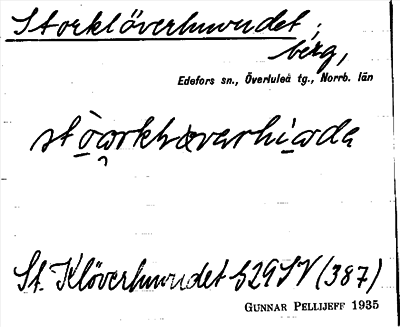 Storklöverhuvudet,
berg,
Edefors sn., Överluleå tg., Norrb. län
St. Klöverhuvudet 529SV (387)
GUNNAR PELLIJEFF 1935